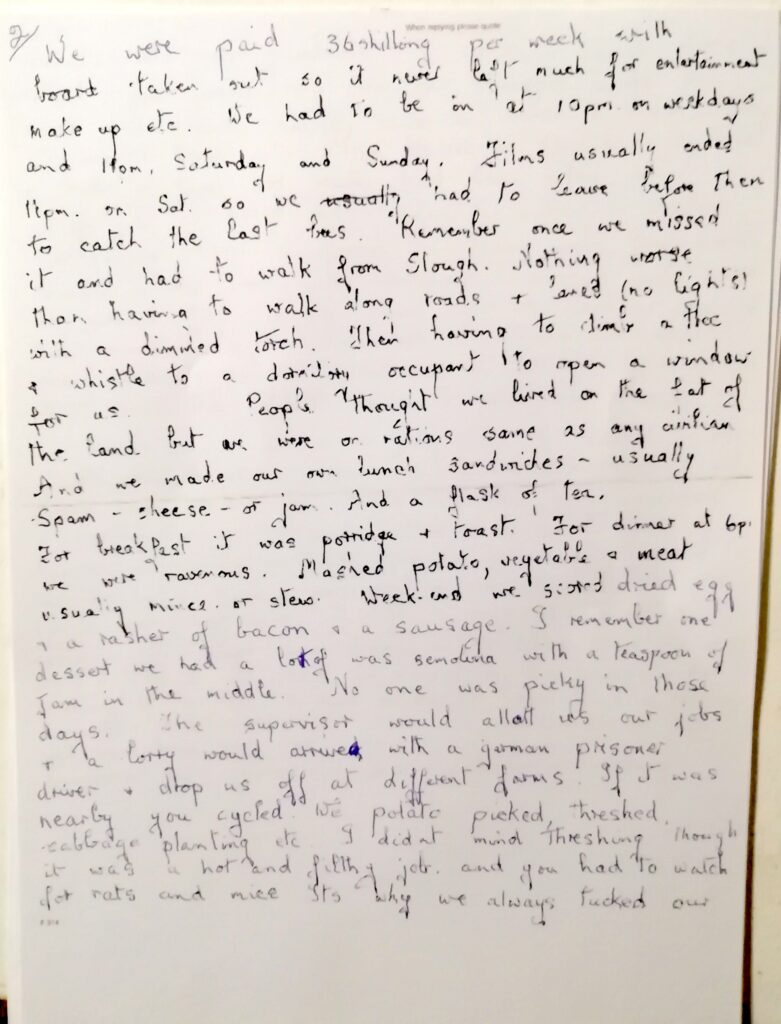 When replying please quote
2/ We were paid 36 shillong per week with
board taken out so it never left much for entertainment
make up etc. We had to be in at 10pm. on weekdays
and 11pm. Saturday and Sunday. Films usually ended
11pm. on Sat. so we usually had to leave before then
to catch the last bus. Remember once we missed
it and had to walk from Slough. Nothing worse
than having to walk along roads + lanes (no lights)
with a dimmed torch. Then having to climb a tree
& whistle to a dormitory occupant to open a window
for us. People thought we lived on the fat of
the land but we were on rations same as any civilian
And we made our own lunch sandwiches - usually
Spam - cheese - or jam. And a flask of tea.
For breakfast it was porridge + toast. For dinner at 6p.
we were ravenous. Mashed potato, vegetable & meat
usually mince or stew. Week-end we dried egg
+ a rasher of bacon & a sausage. I remember one
dessert we had a lot of was semolina with a teaspoon of
Jam in the middle. No one was picky in those
days. The supervisor would allott us our jobs
+ a lorry would arrive with a german prisoner
driver & drop us off at different farms. If it was
nearby you cycled. We potato picked, threshed,
cabbage planting etc. I didnt mind threshing though
it was a hot and filthy job. and you had to watch
for rats and mice Its why we always tucked our